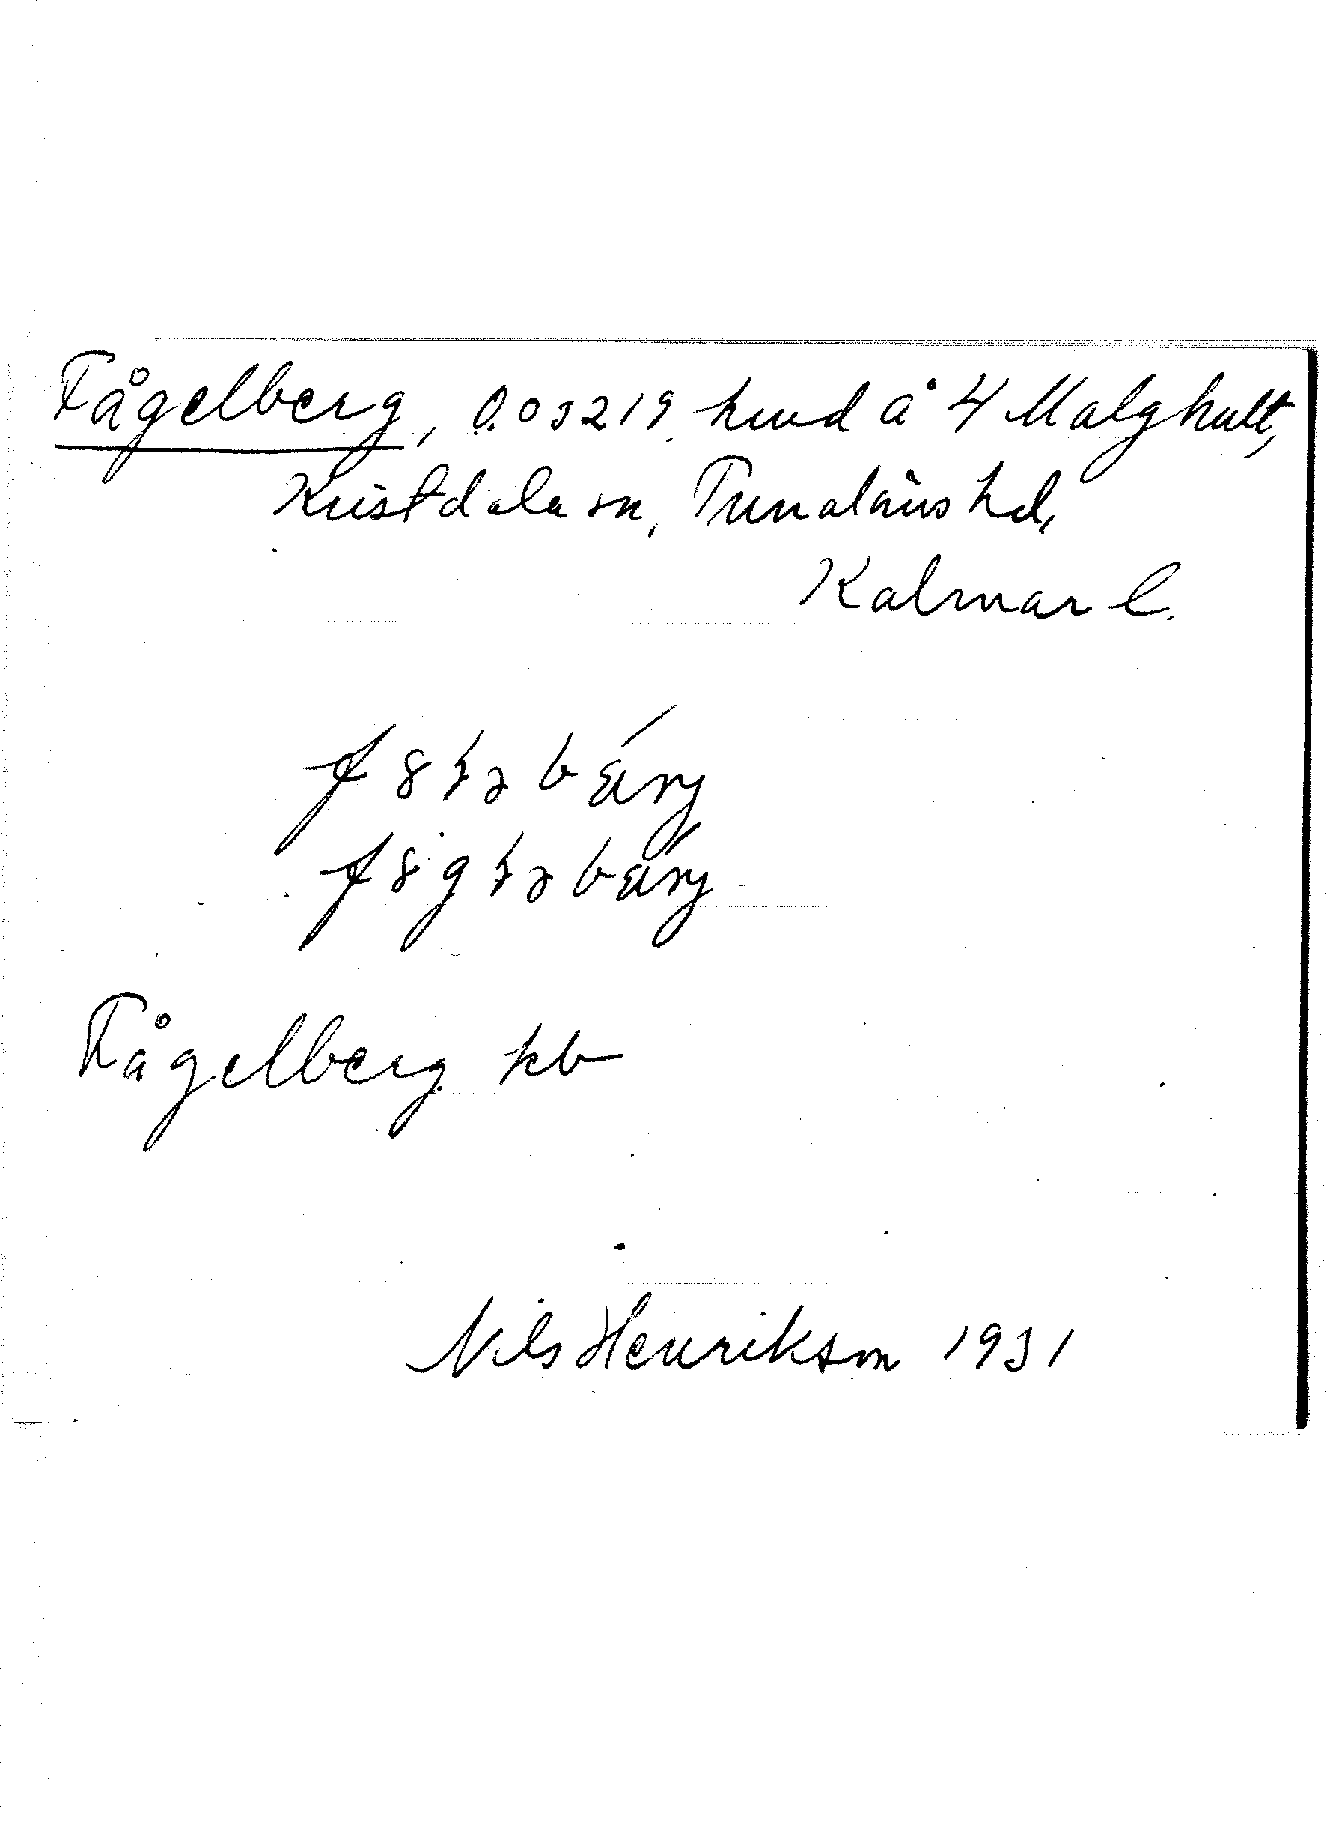 Fågelberg, 0.03219 hmd å 4 Malghult,
Kristdala sn, Tunaläns hd,
Kalmar l.
Fågelberg kb
Nils Henrikson 1931